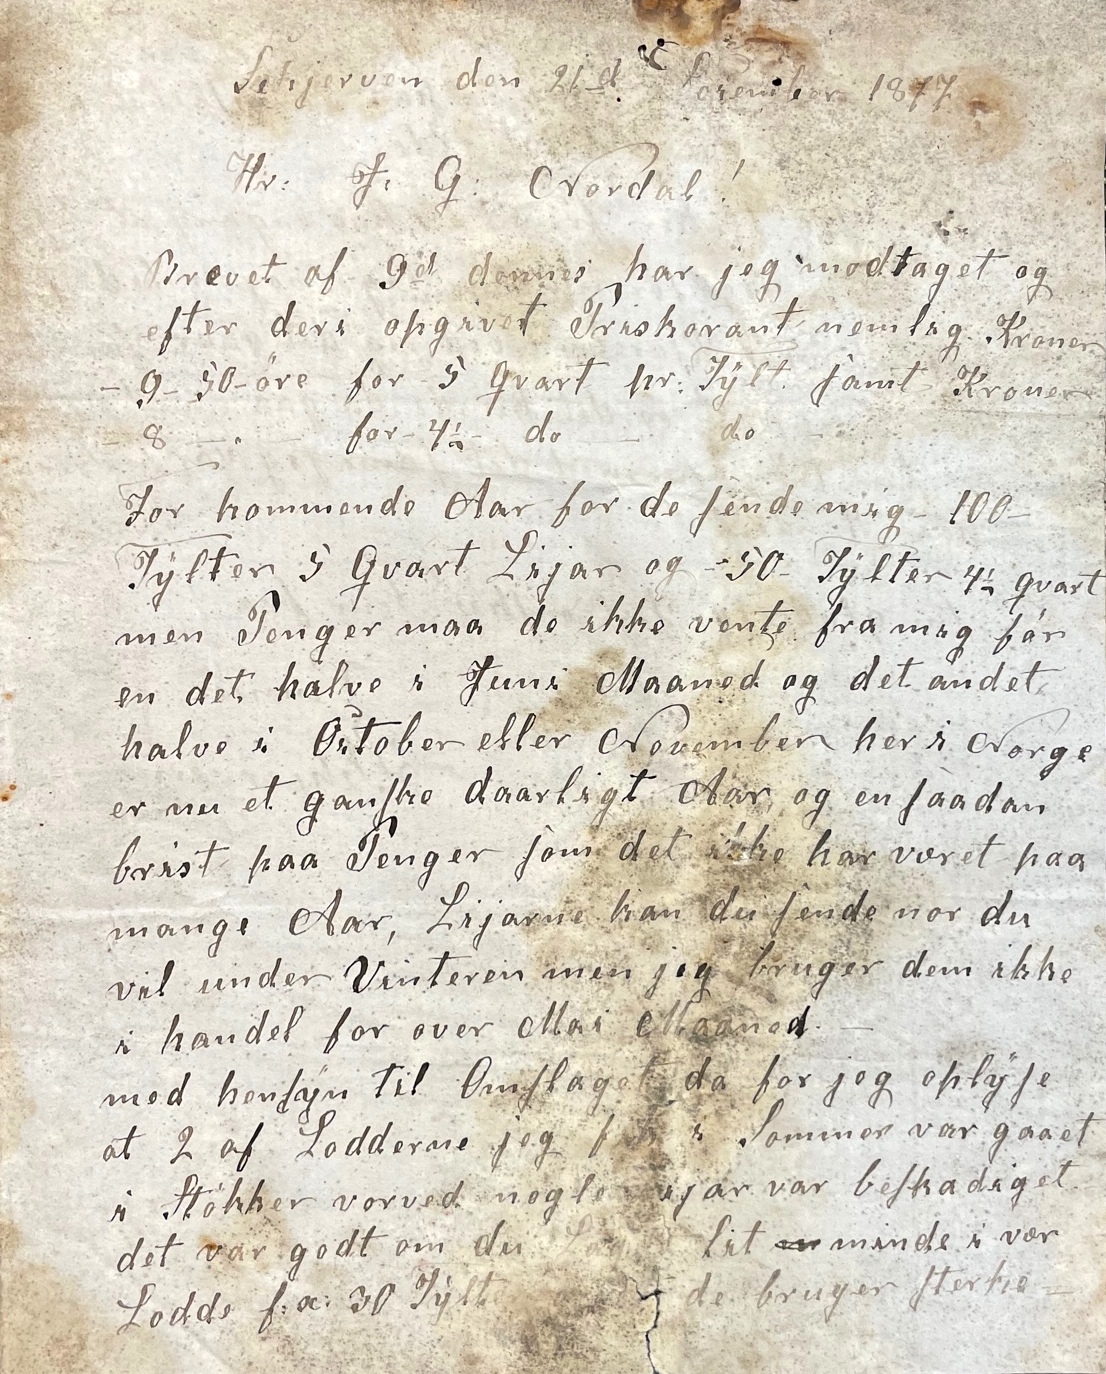 Schjerven den 21d November 1877
Hr: J: G: Nordal!
Brevet af 9d dennes har jeg modtaget og
efter deri opgivet Priskorant nemlig Kroner
- 9-50-öre for 5 Qvart pr: Tÿlt samt Kroner
- 8 - for 4½ do do
For kommende Aar for de sende mig - 100-
Tÿlter 5 Qvart Lijar og -50- Tÿlter 4½ qvart
men Penger maa de ikke vente fra mig før
en det halve i Juni Maaned og det andet
halve i October eller November her i Norge
er nu et ganske daarligt Aar og en saadan
brist paa Penger som det ikke har været paa
mange Aar, Lijarne kan du sende nor du
vil under Vinteren men jeg bruger dem ikke
i handel for over Mai Maaned. -
med hensÿn til Omslaget da for jeg oplÿse
at 2 af Lodderne jeg i Sommer var gaaet
i Stökker vorved nogle var beskadiget
det var godt om du lit minde i vær
Lodde f:a: 30 Tÿlt de bruger sterke=